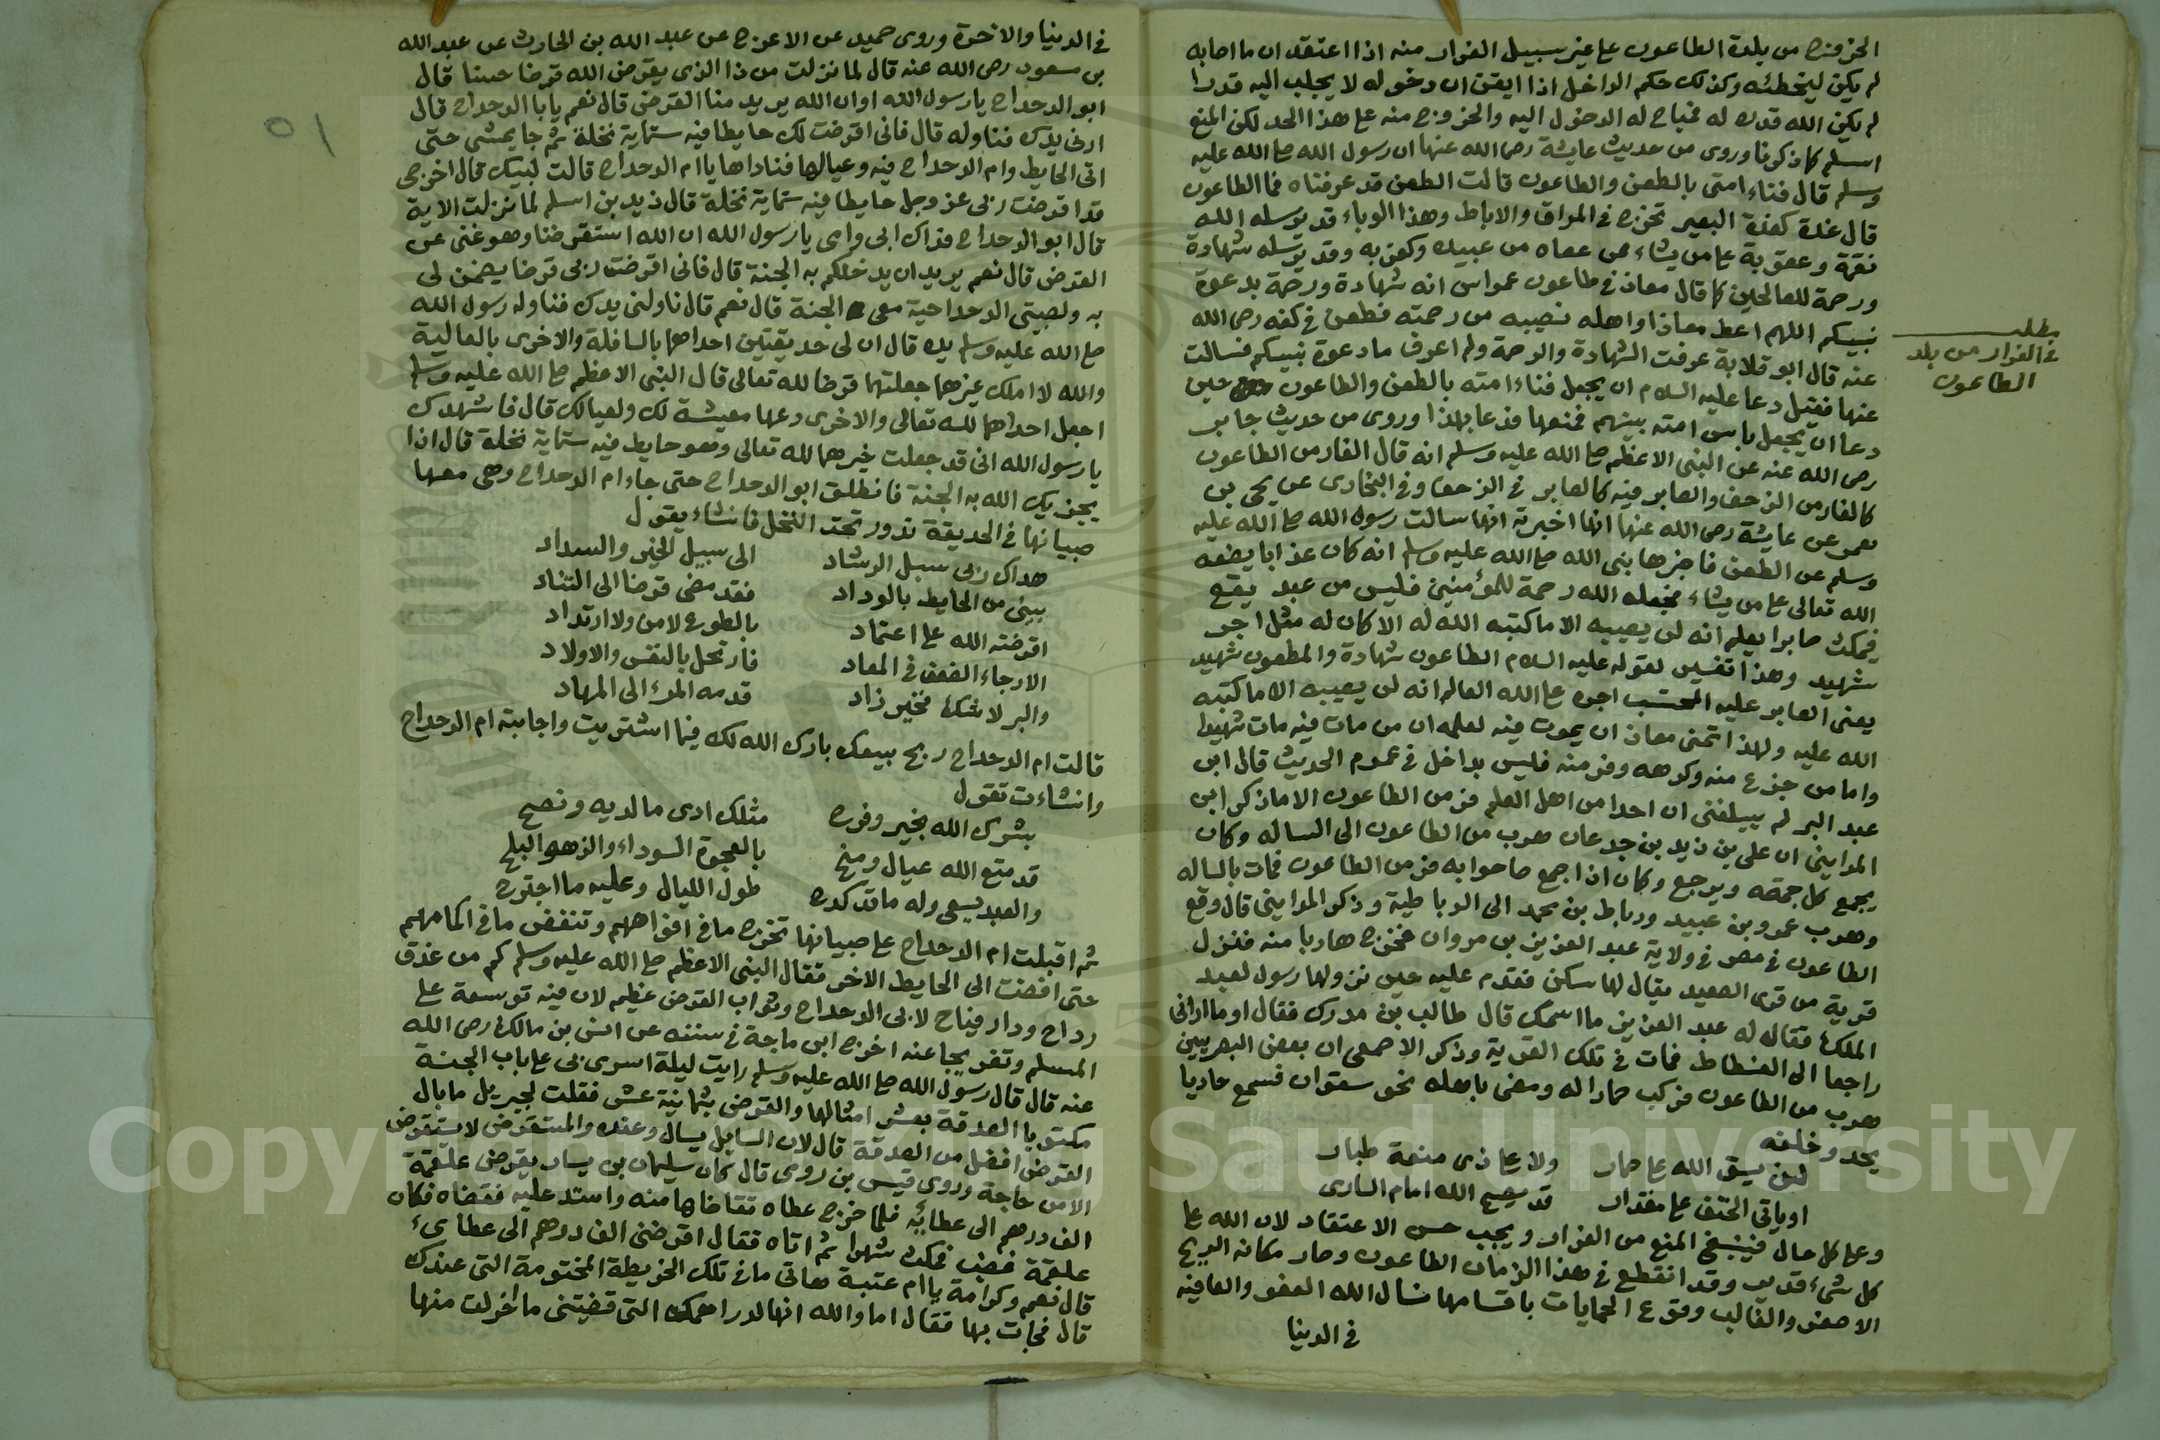 الخروج من بلدة الطاعون على غير سبيل الفرار منه اذا اعتقد ان ما اصابه
لم يكن ليخطئه وكذلك حكم الداخل اذا ايقن ان دخوله لا يجلب اليه قدرا
لم يكن الله قدره له فمباح له الدخول اليه والخروج منه على هذا الحد لكن المنع
اسلم كما ذكرنا وروى من حديث عايشة رضى الله عنها ان رسول الله صلى الله عليه
وسلم قال فناء امتى بالطعن والطاعون قالت الطعن قد عرفناه فما الطاعون
قال غدة كغدة البعير تخرج فى المراق والاباط وهذا الوباء قد يرسله الله
نقمة وعقوبة على من يشاء ممن عصاه من عبيده وكفر به وقد يرسله شهادة
ورحمة للصالحين كما قال معاذ فى طاعون عمواس انه شهادة ورحمة بدعوة
نبيكم اللهم اعط معاذا واهله نصيبه من رحمته فطعن فى كفه رضى الله
عنه قال ابو قلابة عرفت الشهادة والرحمة ولم اعرف ما دعوة نبيكم فسالت
عنها فقيل دعا عليه السلام ان يجعل فناء امته بالطعن والطاعون حين
دعا ان يجعل باس امته بينهم فمنعها فدعا بهذا وروى من حديث جابر
رضى الله عنه عن النبى الاعظم صلى الله عليه وسلم انه قال الفار من الطاعون
كالفار من الزحف والصابر فيه كالصابر فى الزحف وفى البخارى عن يحيى بن
يعمر عن عايشة رضى الله عنها انها اخبرته انها سالت رسول الله صلى الله عليه
وسلم عن الطعن فاخبرها نبى الله صلى الله عليه وسلم انه كان عذابا يضعه
الله تعالى على من يشاء فجعله الله رحمة للمؤمنين فليس من عبد يقع
فيمكث صابرا يعلم انه لن يصيبه الا ما كتبه الله له الا كان له مثل اجر
شهيد وهذا تفسير لقوله عليه السلام الطاعون شهادة والمطعون شهيد
يعنى الصابر عليه المحتسب اجره على الله العالم انه لن يصيبه الا ما كتبه
الله عليه ولهذا تمنى معاذ ان يموت فيه لعلمه ان من مات فيه مات شهيدا
واما من جزع منه وكرهه وفر منه فليس بداخل فى عموم الحديث قال ابن
عبد البر لم يبلغنى ان احدا من اهل العلم فر من الطاعون الا ما ذكر ابن
المداينى ان على بن زيد بن جدعان هرب من الطاعون الى السباله وكان
يجمع كل جمعه ويرجع وكان اذا جمع صاحوا به فر من الطاعون فمات بالسباله
وهرب عمرو بن عبيد ورباط بن محمد الى الرباطية وذكر المداينى قال وقع
الطاعون فى مصر فى ولاية عبد العزيز بن مروان فخرج هاربا منه فنزل
قرية من قرى الصعيد يقال لها سكن فقدم عليه حين نزولها رسول لعبد
الملك فقال له عبد العزيز ما اسمك قال طالب بن مدرك فقال اوه ما ارانى
راجعا الى الفسطاط فمات فى تلك القرية وذكر الاصمعى ان بعض البصريين
هرب من الطاعون فركب حمارا له ومضى باهله نحو سفوان فسمع حاديا
يحدو خلفه
لن يسبق الله على حمار ولا على ذى منعة طيار
او ياتى الحتف على مقدار قد يصبح الله امام السارى
وعلى كل حال فينبغى المنع من الفرار ويجب حسن الاعتقاد لان الله على
كل شىء قدير وقد انقطع فى هذا الزمان الطاعون وصار مكانه الريح
الاصفر والغالب وقوع الحمايات باقسامها نسال الله العفو والعافيه
فى الدنيا
مطلب
فى الفرار من بلد
الطاعون
٥١
فى الدنيا والاخرة وروى حميد عن الاعرج عن عبد الله بن الحارث عن عبد الله
بن مسعود رضى الله عنه قال لما نزلت من ذا الذى يقرض الله قرضا حسنا قال
ابو الدحداح يا رسول الله او ان الله يريد منا القرض قال نعم يا با الدحداح قال
ارنى يدك فناوله قال فانى اقرضت لك حايطا فيه ستماية نخلة ثم جا يمشى حتى
اتى الحايط وام الدحداح فيه وعيالها فناداها يا ام الدحداح قالت لبيك قال اخرجى
قد اقرضت ربى عز وجل حايطا فيه ستماية نخلة قال زيد بن اسلم لما نزلت الاية
قال ابو الدحداح فداك ابى وامى يا رسول الله ان الله استقرضنا وهو غنى عن
القرض قال نعم يريد ان يدخلكم به الجنة قال فانى اقرضت ربى قرضا يضمن لى
به ولصبيتى الدحداحية معى الجنة قال نعم قال ناولنى يدك فناوله رسول الله
صلى الله عليه وسلم يده قال ان لى حديقتين احداهما بالسافلة والاخرى بالعالية
والله لا املك غيرهما جعلتهما قرضا لله تعالى قال النبى الاعظم صلى الله عليه وسلم
اجعل احداهما لله تعالى والاخرى دعها معيشة لك ولعيالك قال فاشهدك
يا رسول الله انى قد جعلت خيرهما لله تعالى وهو حايط فيه ستماية نخلة قال اذا
يجزيك الله به الجنة فانطلق ابو الدحداح حتى جاء ام الدحداح وهى معها
صبيانها فى الحديقة تدور تحت النخل فانشاء يقول
هداك ربى سبل الرشاد الى سبيل الخير والسداد
بينى من الحايط بالوداد فقد مضى قرضا الى التناد
اقرضته الله على اعتماد بالطوع لا من ولا ارتداد
الا رجاء الضعف فى المعاد فارتحلى بالنفس والاولاد
والبر لا شك فخير زاد قدمه المرء الى المهاد
قالت ام الدحداح ربح بيعك بارك الله لك فيما اشتريت واجابته ام الدحداح
وانشاءت تقول
بشرك الله بخير وفرح مثلك ادى ما لديه ونصح
قد متع الله عيالى ومنح بالعجوة السوداء والزهو البلح
والعبد يسعى وله ما قد كدح طول الليال وعليه ما اجترح
ثم اقبلت ام الدحداح على صبيانها تخرج ما فى افواههم وتنفض ما فى اكمامهم
حتى افضت الى الحايط الاخر فقال النبى الاعظم صلى الله عليه وسلم كم من عذق
رداح ودار فياح لابى الدحداح وثواب القرض عظيم لان فيه توسعة على
المسلم وتفريجا عنه اخرج ابن ماجة فى سننه عن انس بن مالك رضى الله
عنه قال قال رسول الله صلى الله عليه وسلم رايت ليلة اسرى بى على باب الجنة
مكتوبا الصدقة بعشر امثالها والقرض بثمانية عشر فقلت لجبريل ما بال
القرض افضل من الصدقة قال لان السايل يسال وعنده والمستقرض لا يستقرض
الا من حاجة وروى قيس بن رومى قال كان سليمان بن يسار يقرض علقمة
الف درهم الى عطائه فلما خرج عطاه تقاضاها منه واستد عليه فقضاه فكان
علقمة غضب فمكث شهرا ثم اتاه فقال اقرضنى الف درهم الى عطاىء
قال نعم وكرامة يا ام عتبة هاتى ما فى تلك الخريطة المختومة التى عندك
قال فجات بها فقال اما والله انها لدراهمك التى قضيتنى ما اخرلت منها
Copyright © King Saud University